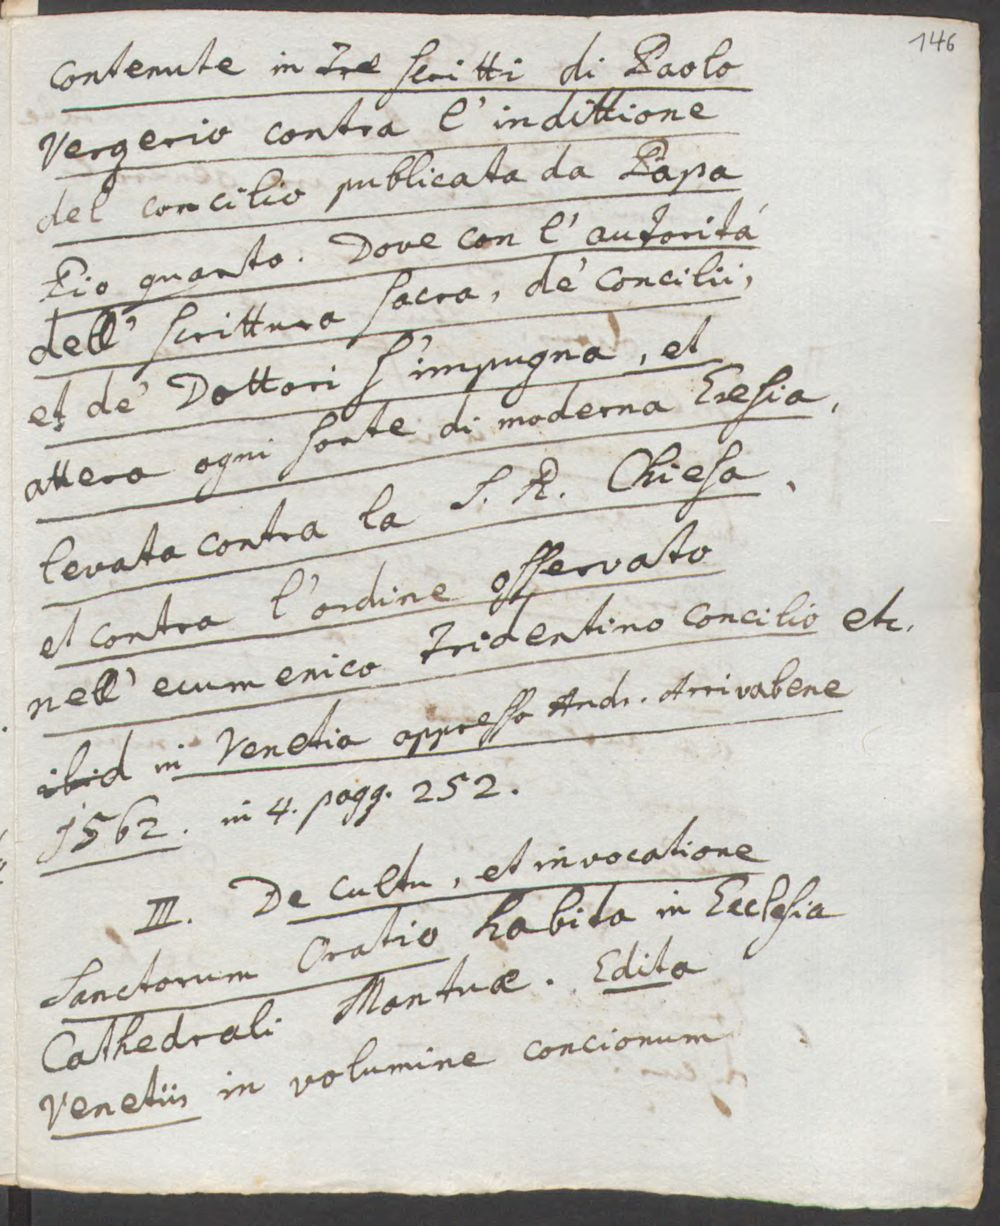 146
contenute in tre scritti di Paolo
Vergerio contra l'indittione
del concilio publicata da Papa
Pio quarto. Dove con l'autorità
dell' scrittura sacra, de' concilii,
et de' Dottori s'impugna, et
attera ogni sorte di moderna Eresia,
levata contra la S. R. Chiesa,
et contra l'ordine osservato
nell' ecumenico tridentino concilio etc.
ibid in Venetia appresso Andr. Arrivabene
1562. in 4. pagg. 252.
III. De cultu, et invocatione
Sanctorum Oratio habita in Ecclesia
Cathedrali Mantuæ. Edita
Venetiis in volumine concionum